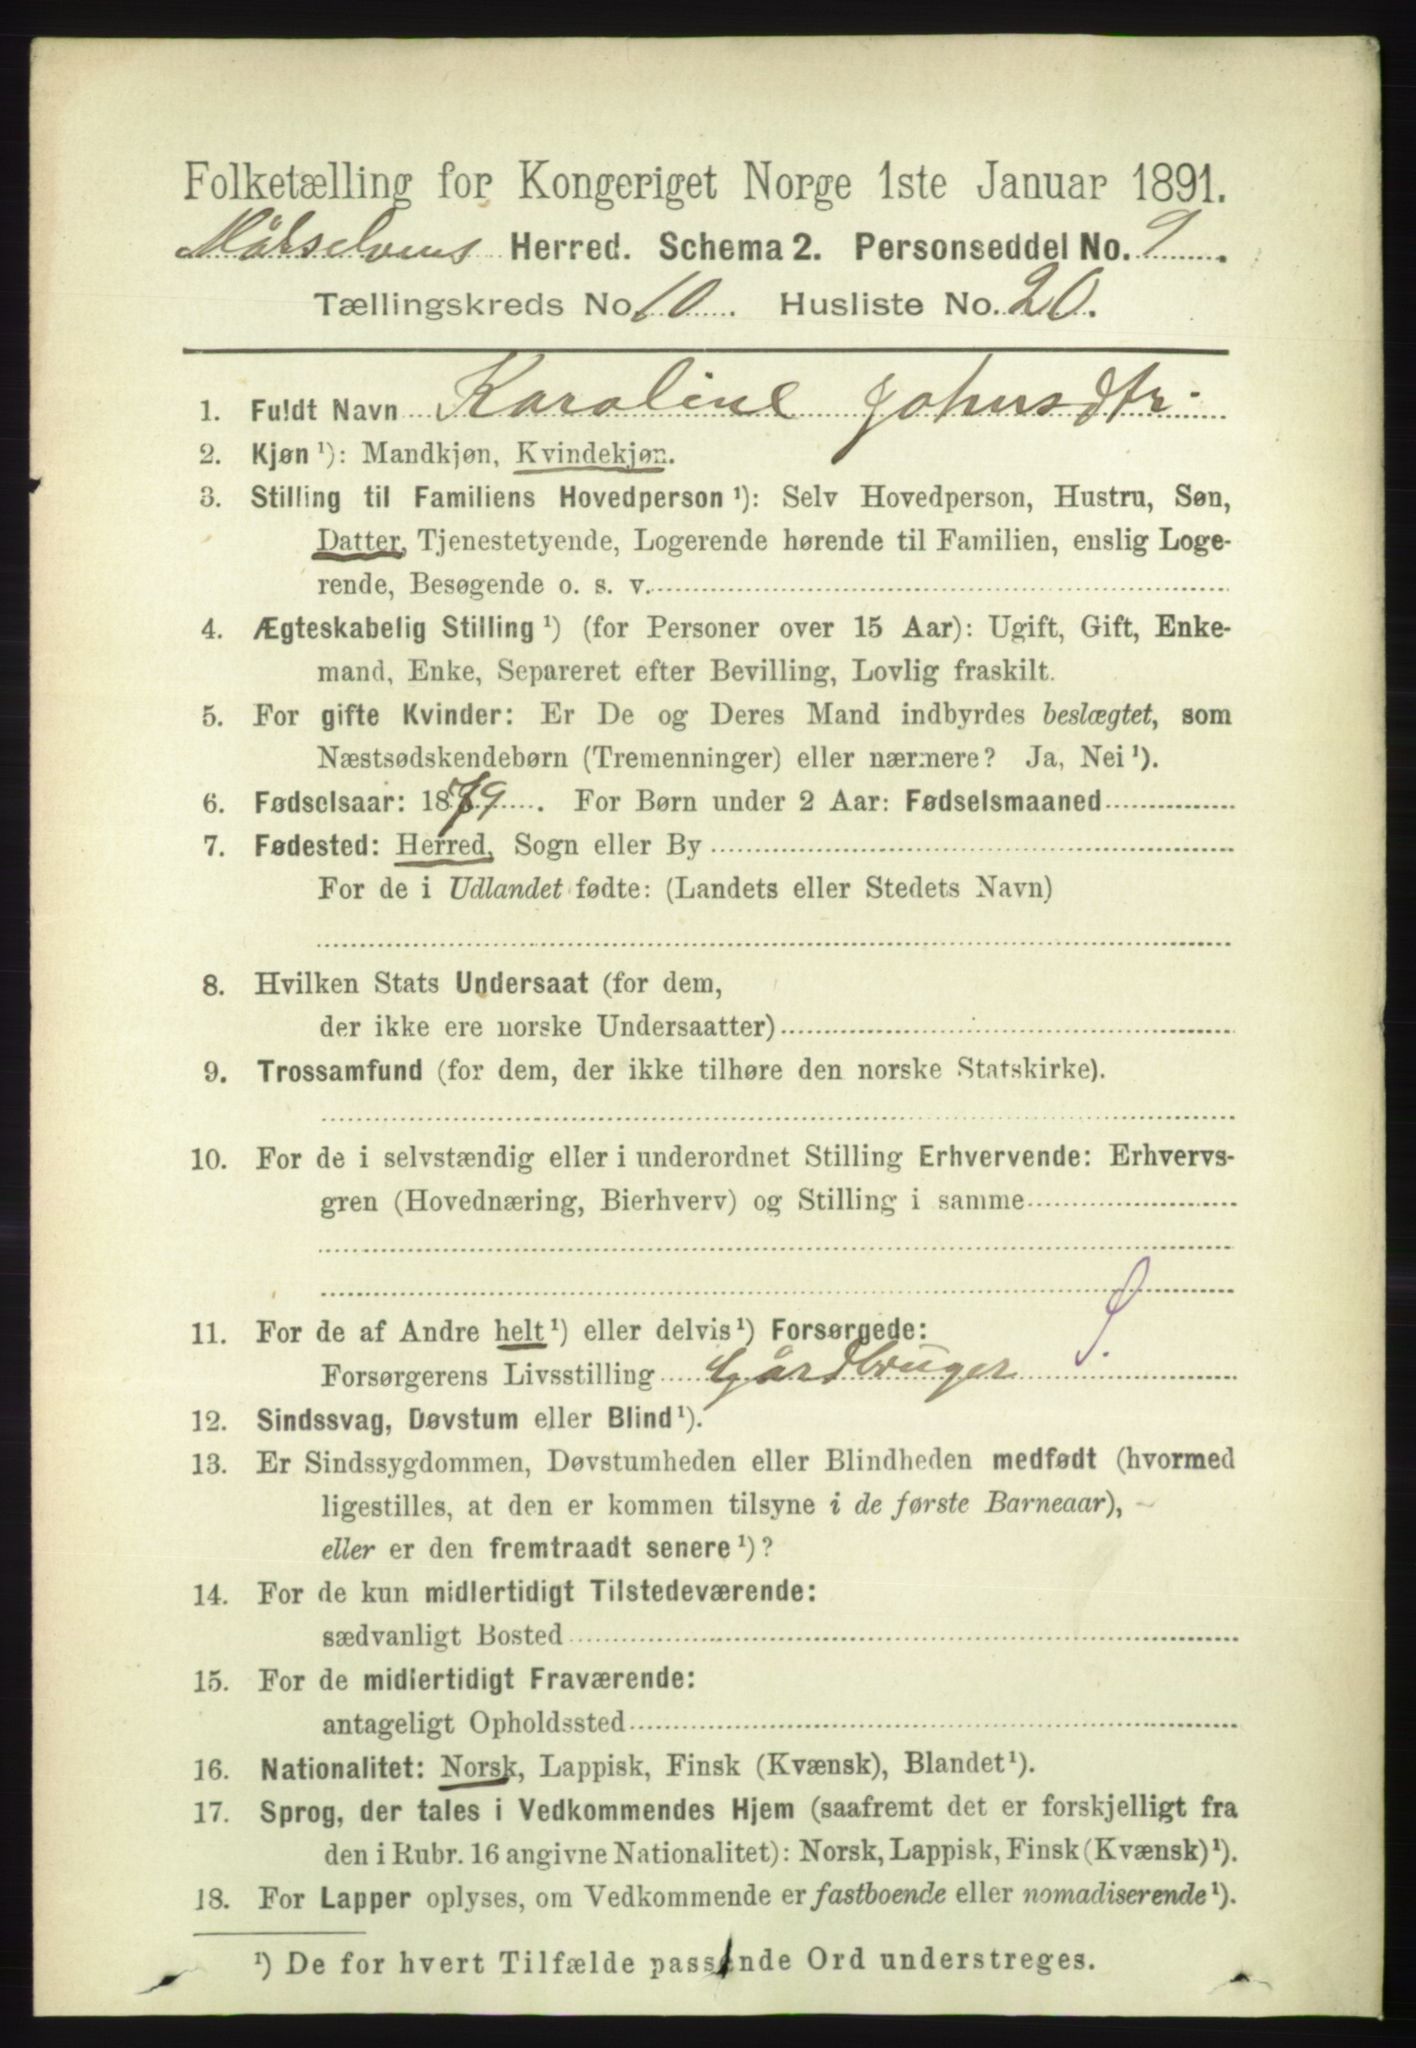 Folketælling for Kongeriget Norge 1ste Januar 1891.
Målselvens Herred. Schema 2. Personseddel No. 9.
Tællingskreds No. 10. Husliste No. 20.
1. Fuldt Navn Karoline Johnsdtr.
2. Kjøn ¹): Mandkjøn, Kvindekjøn.
3. Stilling til Familiens Hovedperson ¹): Selv Hovedperson, Hustru, Søn,
Datter, Tjenestetyende, Logerende hørende til Familien, enslig Loge-
rende, Besøgende o. s. v.
4. Ægteskabelig Stilling ¹) (for Personer over 15 Aar): Ugift, Gift, Enke-
mand, Enke, Separeret efter Bevilling, Lovlig fraskilt.
5. For gifte Kvinder: Er De og Deres Mand indbyrdes beslægtet, som
Næstsødskendebørn (Tremenninger) eller nærmere? Ja, Nei ¹).
6. Fødselsaar: 1879. For Børn under 2 Aar: Fødselsmaaned
7. Fødested: Herred, Sogn eller By
For de i Udlandet fødte: (Landets eller Stedets Navn)
8. Hvilken Stats Undersaat (for dem,
der ikke ere norske Undersaatter)
9. Trossamfund (for dem, der ikke tilhøre den norske Statskirke).
10. For de i selvstændig eller i underordnet Stilling Erhvervende: Erhvervs-
gren (Hovednæring, Bierhverv) og Stilling i samme
11. For de af Andre helt ¹) eller delvis ¹) Forsørgede:
Forsørgerens Livsstilling Gårdbruger
12. Sindssvag, Døvstum eller Blind ¹).
13. Er Sindssygdommen, Døvstumheden eller Blindheden medfødt (hvormed
ligestilles, at den er kommen tilsyne i de første Barneaar),
eller er den fremtraadt senere ¹)?
14. For de kun midlertidigt Tilstedeværende:
sædvanligt Bosted
15. For de midlertidigt Fraværende:
antageligt Opholdssted
16. Nationalitet: Norsk, Lappisk, Finsk (Kvænsk), Blandet ¹).
17. Sprog, der tales i Vedkommendes Hjem (saafremt det er forskjelligt fra
den i Rubr. 16 angivne Nationalitet): Norsk, Lappisk, Finsk (Kvænsk) ¹).
18. For Lapper oplyses, om Vedkommende er fastboende eller nomadiserende ¹).
¹) De for hvert Tilfælde passende Ord understreges.